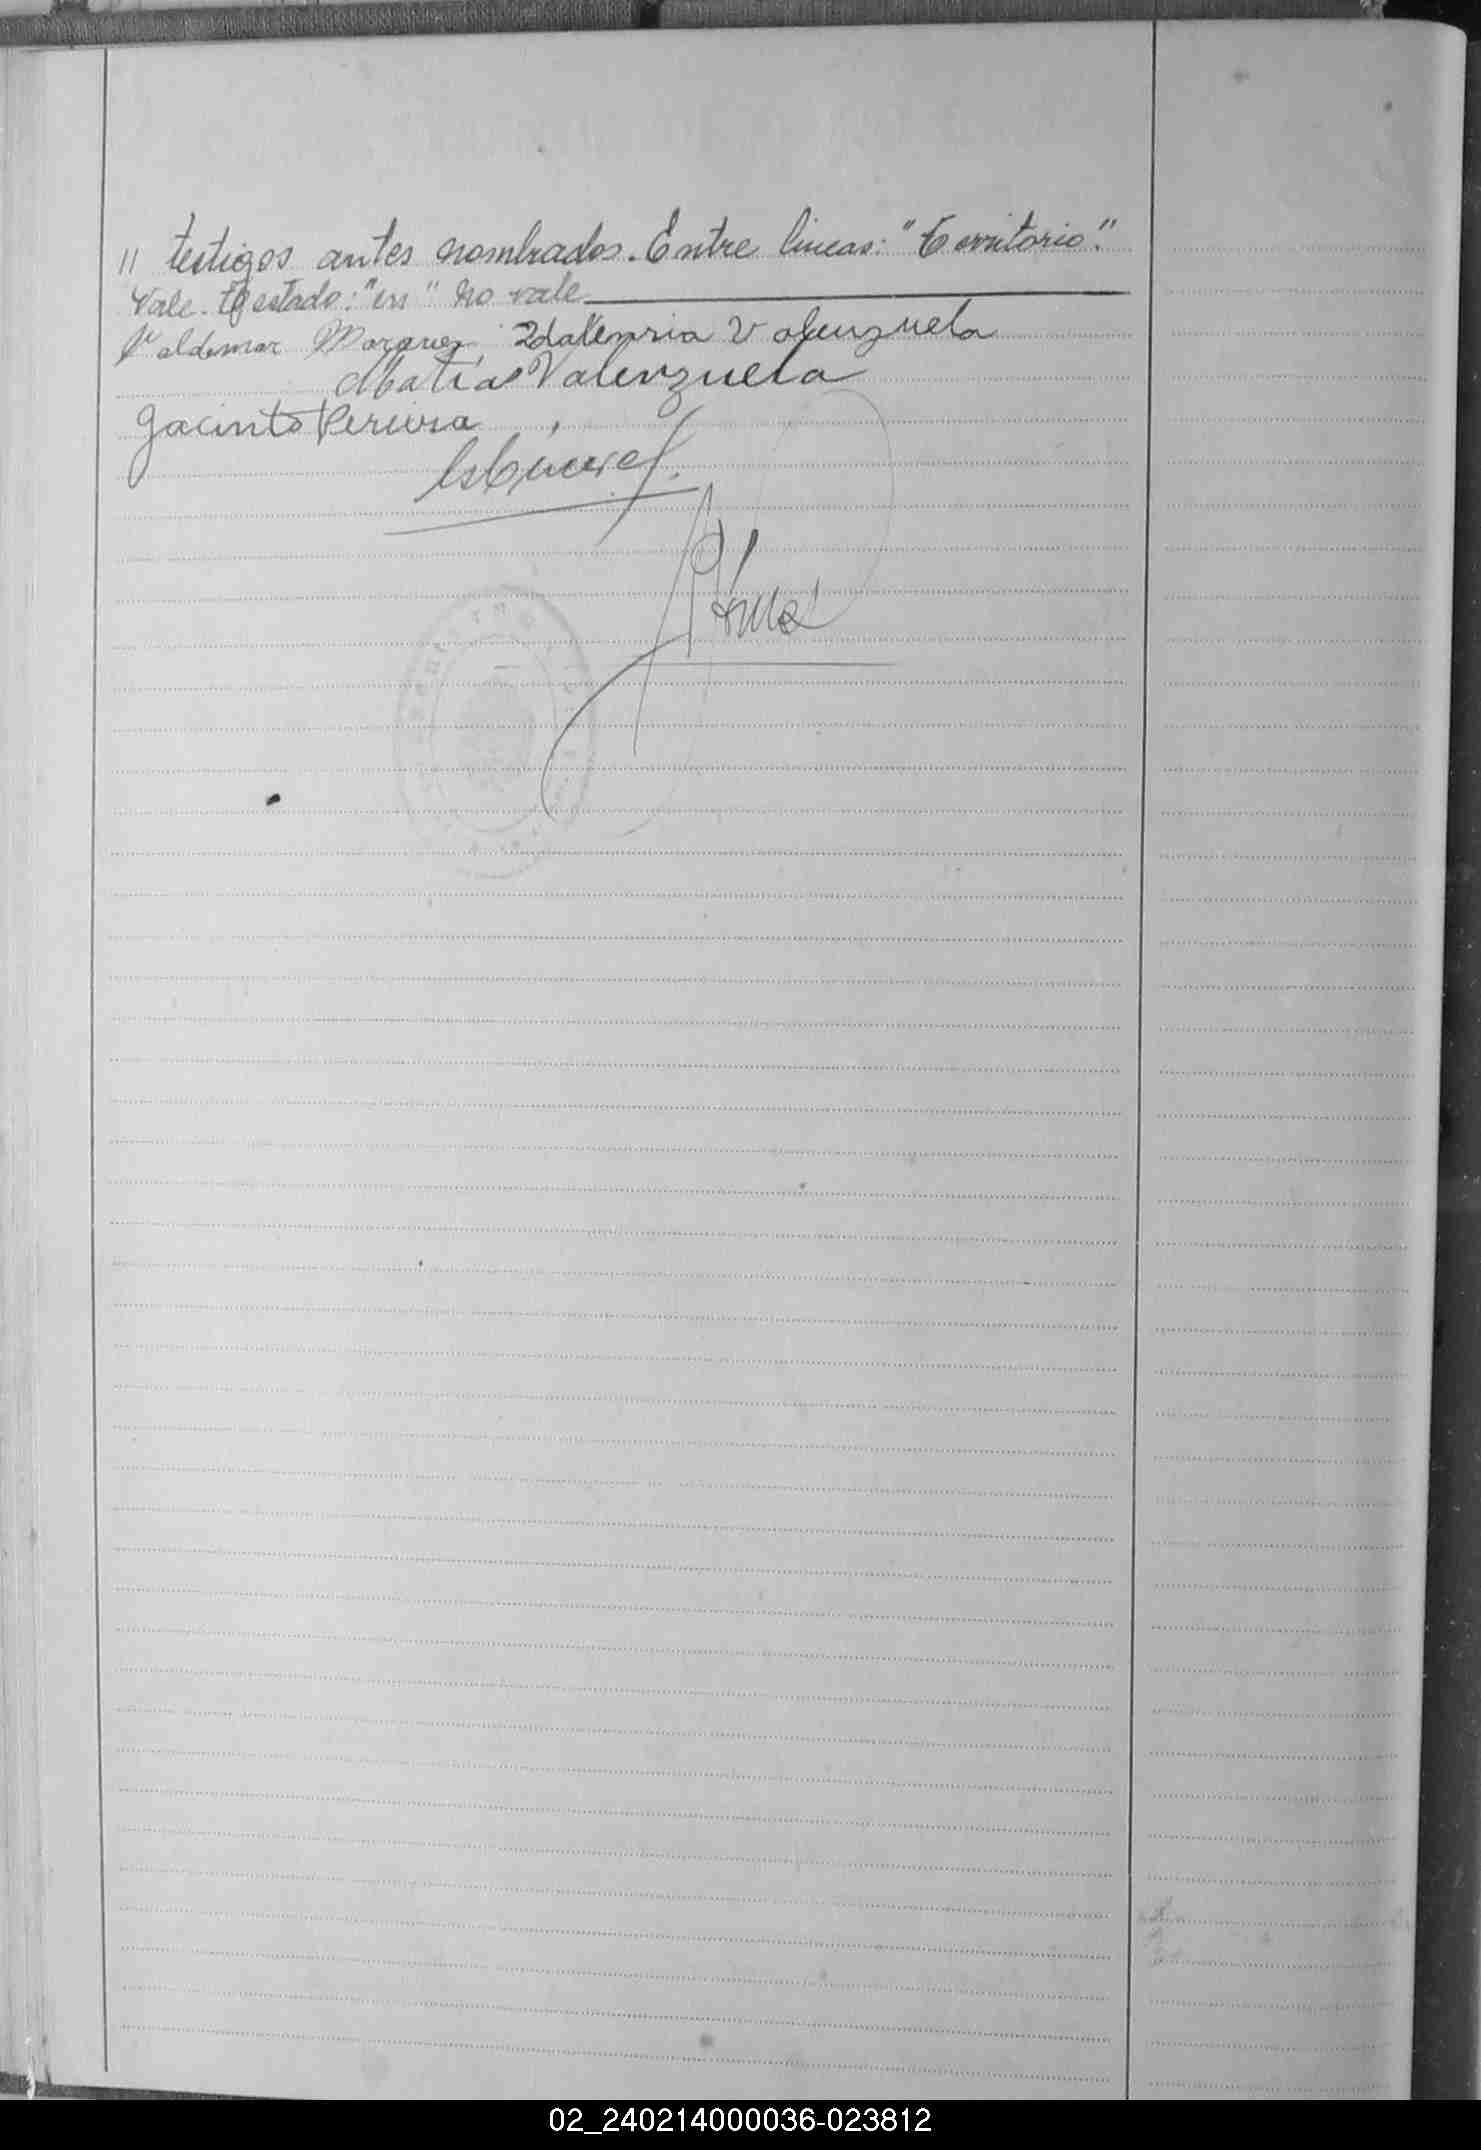 " testigos antes nombrados. Entre lineas: "Territorio".
Vale. Testado: "en" no vale
Valdemar Marquez Valenzuela
Matias Valenzuela
Jacinto Pereira
02_240214000036-023812